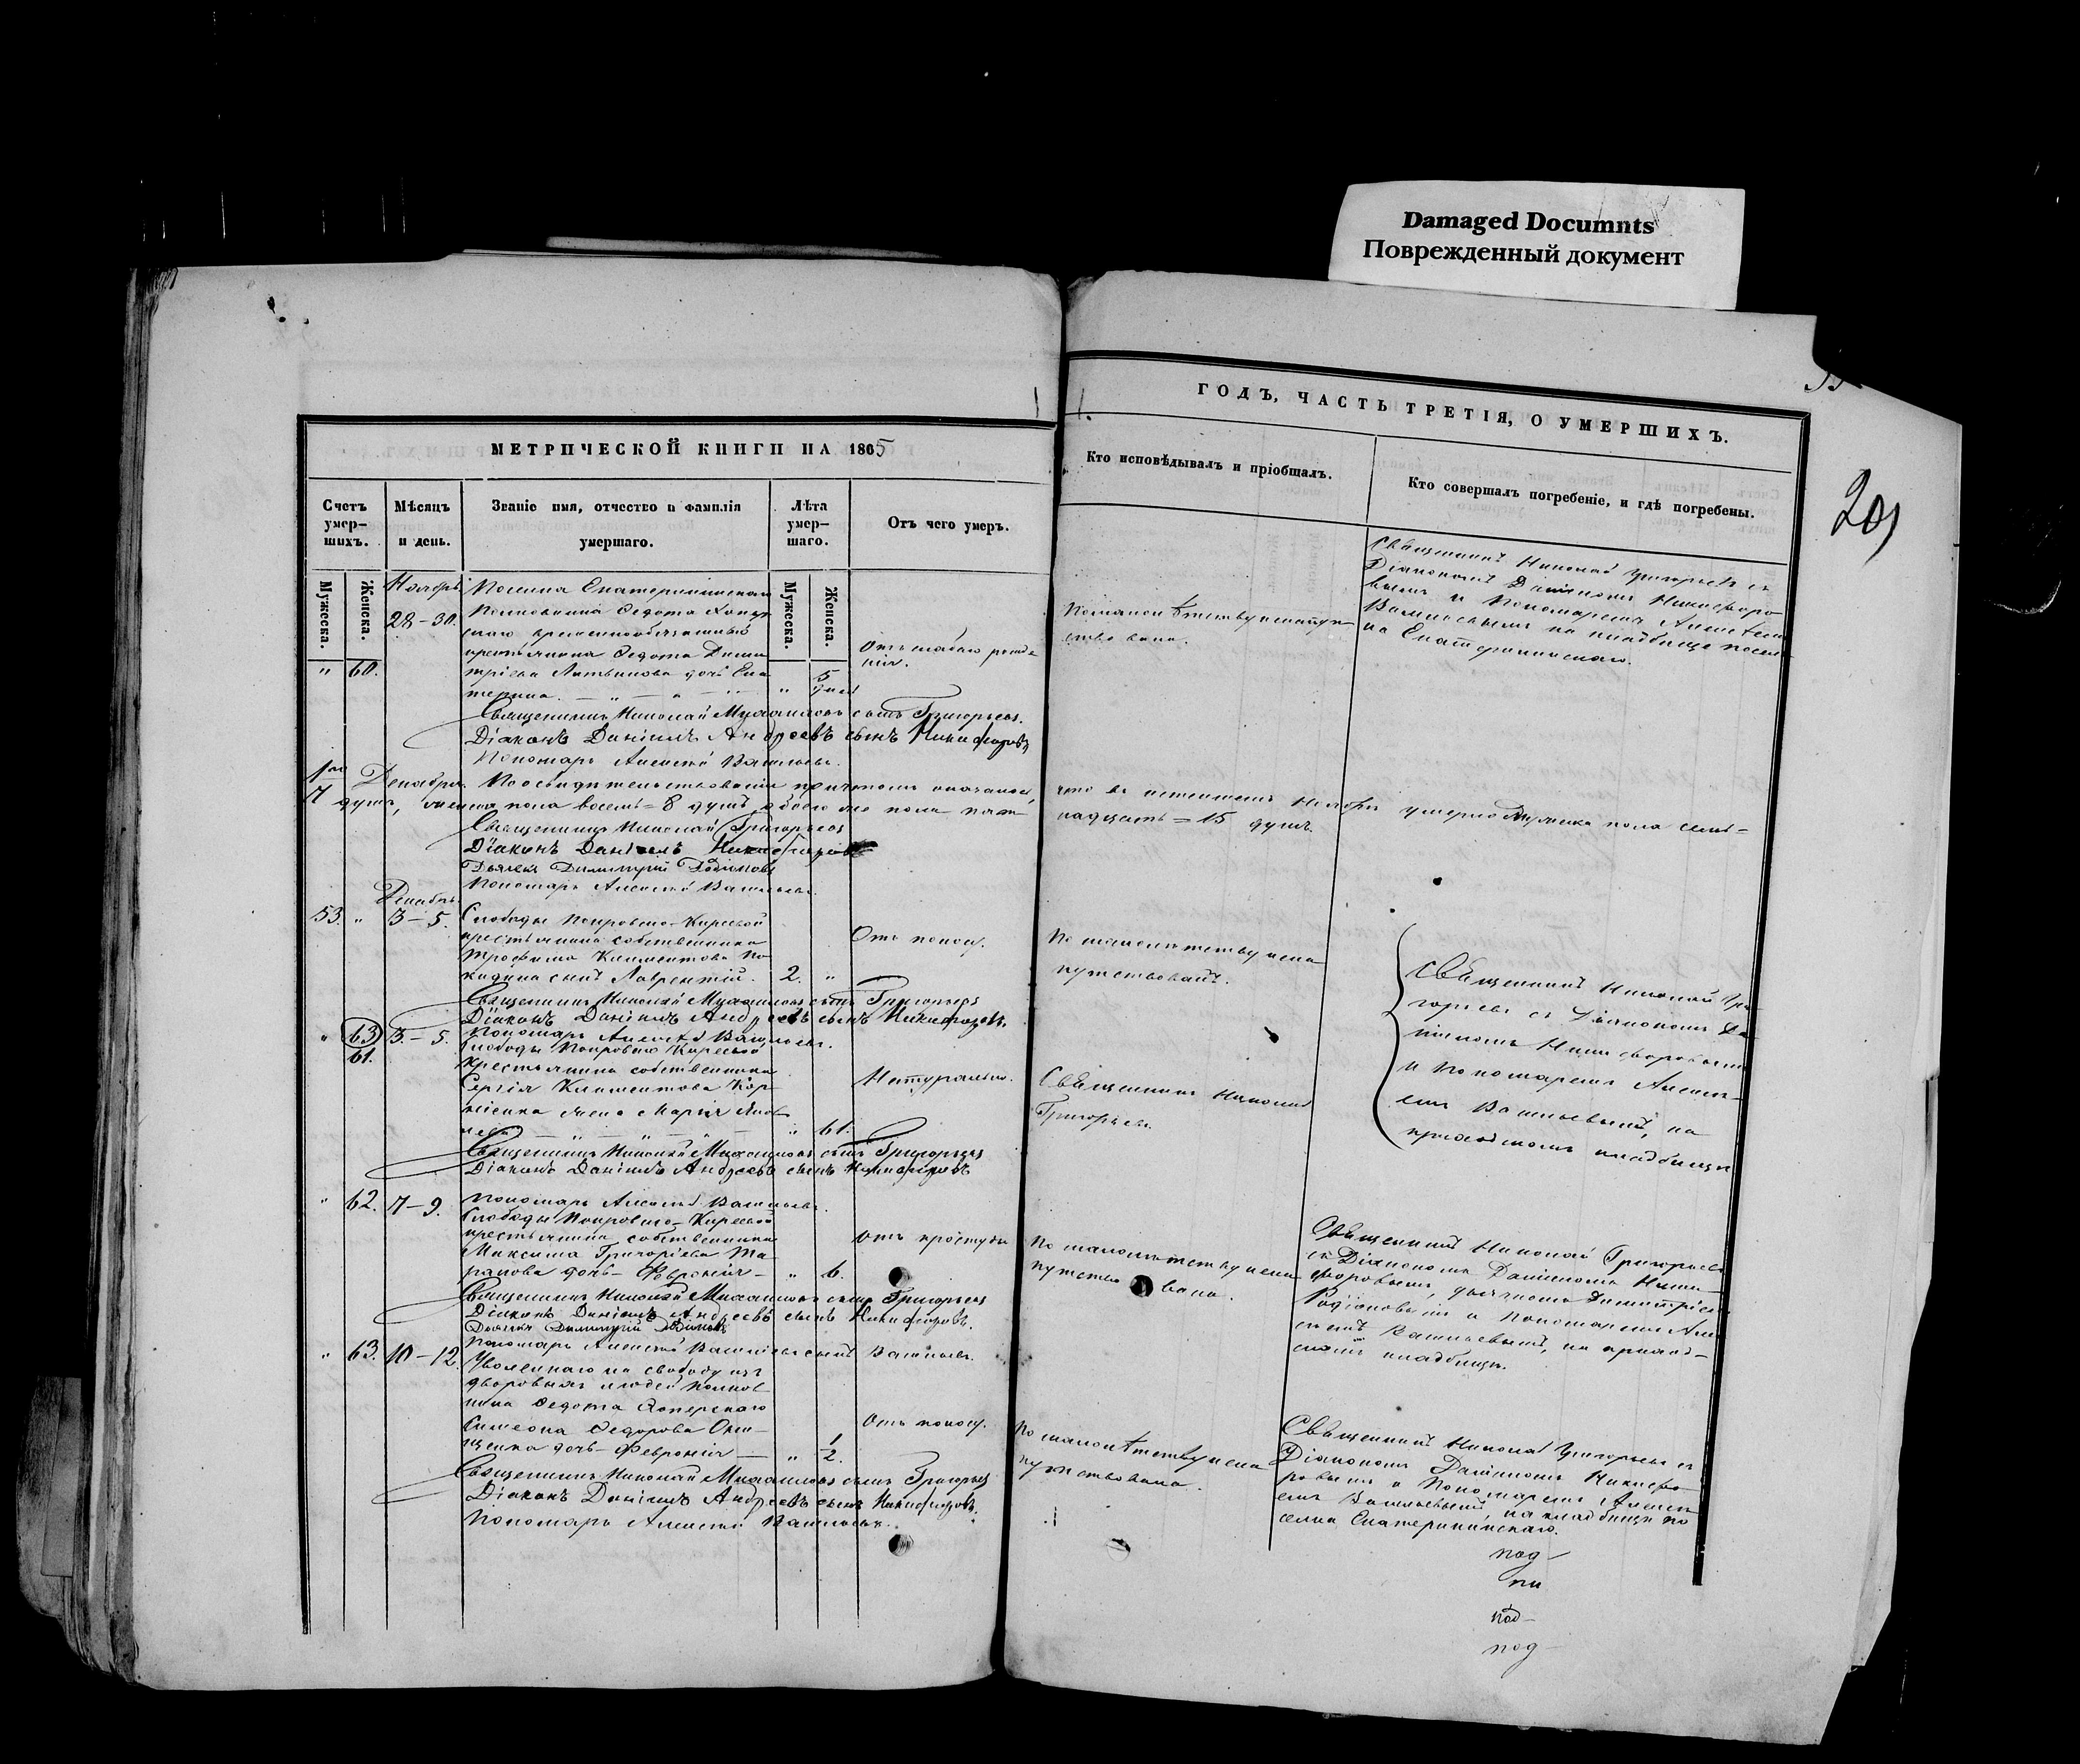 Damaged Documnts
Поврежденный документ
МЕТРИЧЕСКОЙ КНИГИ НА 1865
ГОДЪ, ЧАСТЬ ТРЕТІЯ, О УМЕРШИХЪ.
201
Счетъ умер-шихъ.
Мѣсяцъ и день.
Званіе имя, отчество и фамилія умершаго.
Лѣта умер-шаго.
Отъ чего умеръ.
Кто исповѣдывалъ и пріобщалъ.
Кто совершалъ погребеніе, и гдѣ погребены.
Мужеска.
Женска.
Мужеска.
Женска.
Ноябрь
28-30.
" 60.
Поселка Екатерининскаго
Полковника Федота Хопер
скаго временнообязаннаго
крестьянина Федота Дими
тріева Литвинова дочь Ека
терина. — " — " — "
" 5 дней
Отъ слабаго рожде
нія.
По малолѣтству ненапут
ствована.
Священникъ Николай Григорьевъ съ
Діакономъ Даніиломъ Никифоро
вымъ и Пономаремъ Алексѣемъ
Васильевымъ на кладбищѣ посел
ка Екатерининскаго.
Священникъ Николай Михаиловъ сынъ Григорьевъ.
Діаконъ Даніилъ Андреевъ сынъ Никифоровъ
Пономарь Алексѣй Васильевъ.
1го Декабря. По освидѣтельствованіи причтомъ оказалось,
что въ истекшемъ Ноябрѣ умерло Мужеска пола семь=
7 душъ, женска пола восемь=8 душъ, обоего же пола пят-
надцать=15 душъ.
Священникъ Николай Григорьевъ
Діаконъ Даніилъ Никифоровъ
Дьячекъ Димитрій Родіоновъ
Пономарь Алексѣй Васильевъ.
Декабрь.
53. " 3-5.
Слободы Покровско-Киреевой
крестьянина собственника
Трофима Климентова По
кидина сынъ Лаврентій.
2. "
Отъ поносу.
По малолѣтству нена
путствованъ.
Священникъ Николай Гри
горьевъ съ Діакономъ Да
ніиломъ Никифоровымъ
и Пономаремъ Алексѣ-
емъ Васильевымъ, на
приходскомъ кладбищѣ
Священникъ Николай Михаиловъ сынъ Григорьевъ
Діаконъ Даніилъ Андреевъ сынъ Никифоровъ.
Пономарь Алексѣй Васильевъ.
" 63 3.-5.
61.
Слободы Покровско Киреевой
крестьянина собственника
Сергія Климентова Кор
ніенка жена Марія Яков
лева — " — " — "
" 61.
Натурально.
Священникъ Николай
Григорьевъ.
Священникъ Николай Михаиловъ сынъ Григорьевъ
Діаконъ Даніилъ Андреевъ сынъ Никифоровъ
Пономарь Алексѣй Васильевъ.
" 62. 7-9.
Слободы Покровско-Киреевой
крестьянина собственника
Максима Григоріева Та
ранова дочь — Февронія —
" 6.
Отъ простуды
По малолѣтству нена
путствована.
Священникъ Николай Григорьевъ
съ Діакономъ Даніиломъ Ники
форовымъ, дьячкомъ Димитріемъ
Родіоновымъ и Пономаремъ Але
ксѣемъ Васильевымъ, на приход-
скомъ кладбищѣ.
Священникъ Николай Михаиловъ сынъ Григорьевъ
Діаконъ Даніилъ Андреевъ сынъ Никифоровъ.
Дьячекъ Димитрій Родіоновъ
Пономарь Алексѣй Васильевъ сынъ Васильевъ.
" 63. 10-12.
Уволеннаго на свободу изъ
дворовыхъ людей Полков
ника Федота Хоперскаго
Симеона Федорова Они-
щенка дочь — Февронія —
" 1/2.
Отъ поносу.
По малолѣтству нена
путствована.
Священникъ Николай Григорьевъ съ
Діакономъ Даніиломъ Никифо
ровымъ и Пономаремъ Алексѣ
емъ Васильевымъ, на кладбищѣ по
селка Екатерининскаго.
Священникъ Николай Михаиловъ сынъ Григорьевъ
Діаконъ Даніилъ Андреевъ сынъ Никифоровъ.
Пономарь Алексѣй Васильевъ.
под-
пи
под-
под-